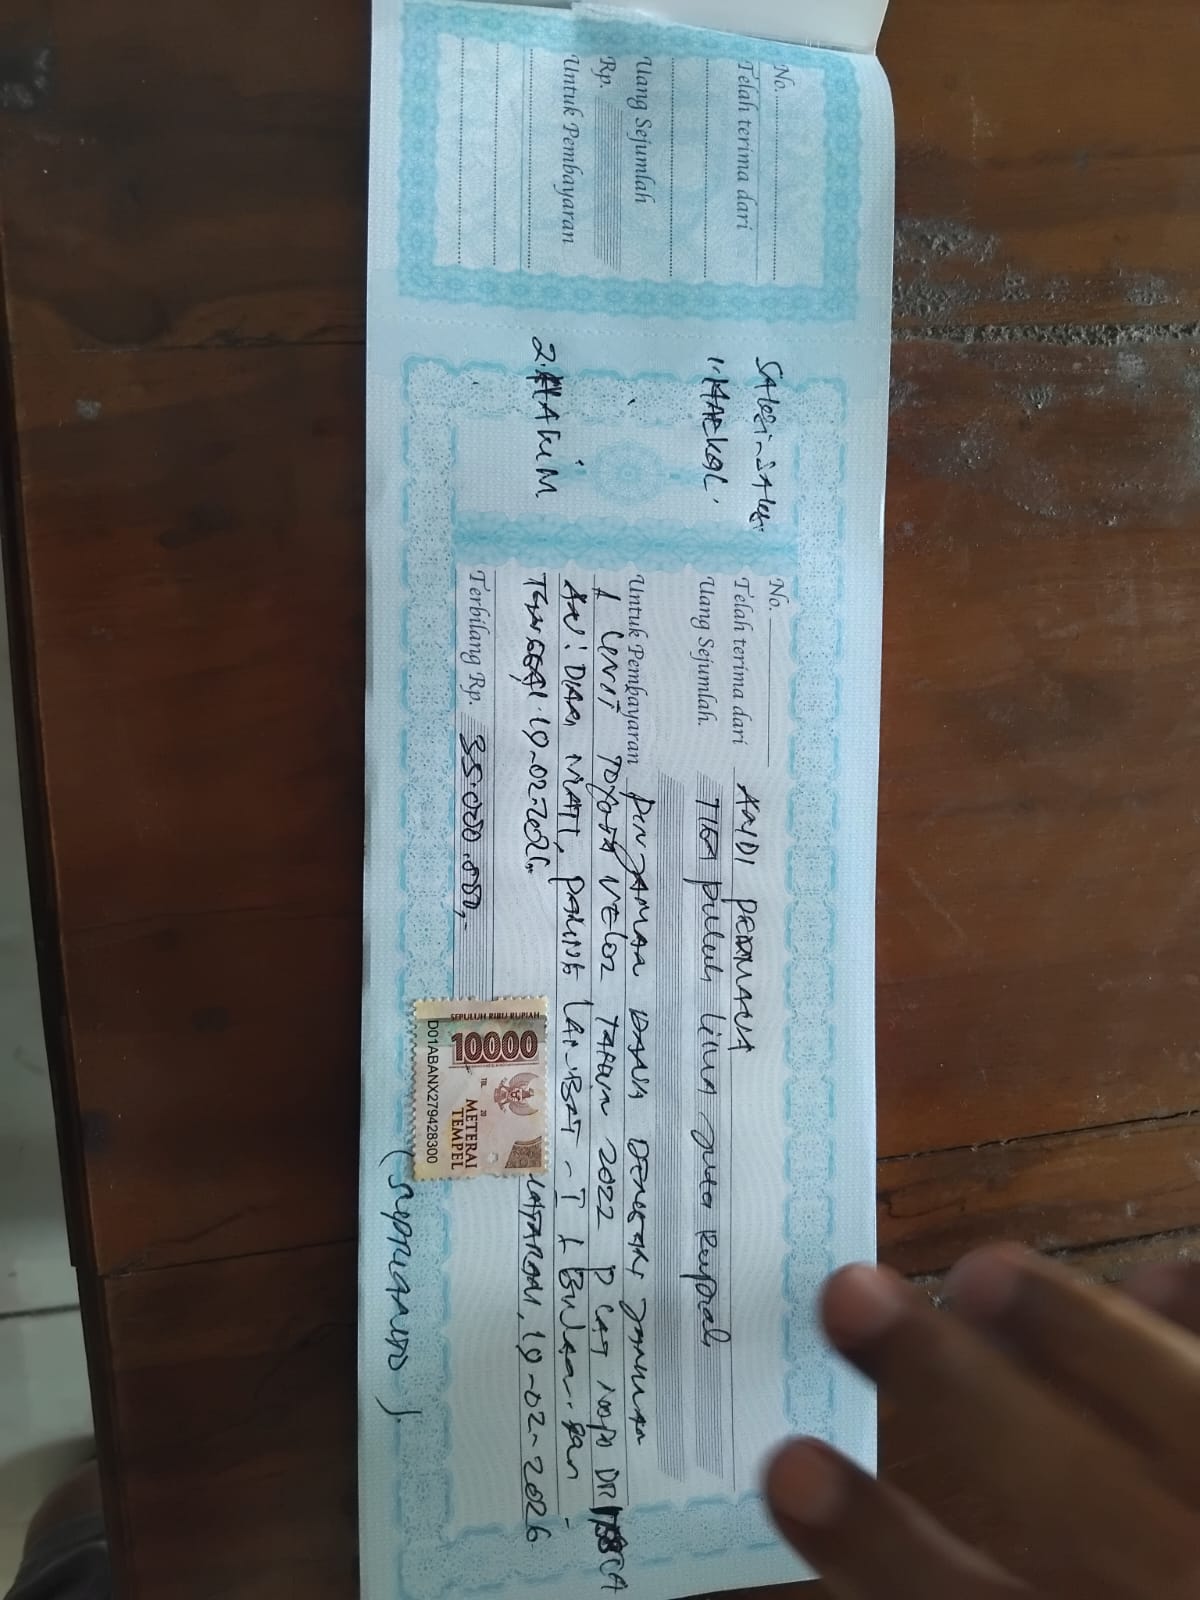 No.
Telah terima dari
Uang Sejumlah
Rp.
Untuk Pembayaran
SAKSI-SAKSI
1. HAEKAL.
2. HAKIM
No.
Telah terima dari ANDI PERMANA
Uang Sejumlah TIGA puluh lima juta Rupiah
Untuk Pembayaran PINJAMAN DANA DENGAN JAMINAN
1 UNIT TOYOTA VELOZ TAHUN 2022 NOPO DR CA
AN: DIAN PALING LAMBAT 1 BULAN. DARI
TANGGAL. 19-02-2026.
MATARAM, 19-02-2026
Terbilang Rp. 35.000.000,-
SEPULUH RIBU RUPIAH
10000
TGL. 20
METERAI
TEMPEL
D01ABANX279428300
(SUPRIANTO).